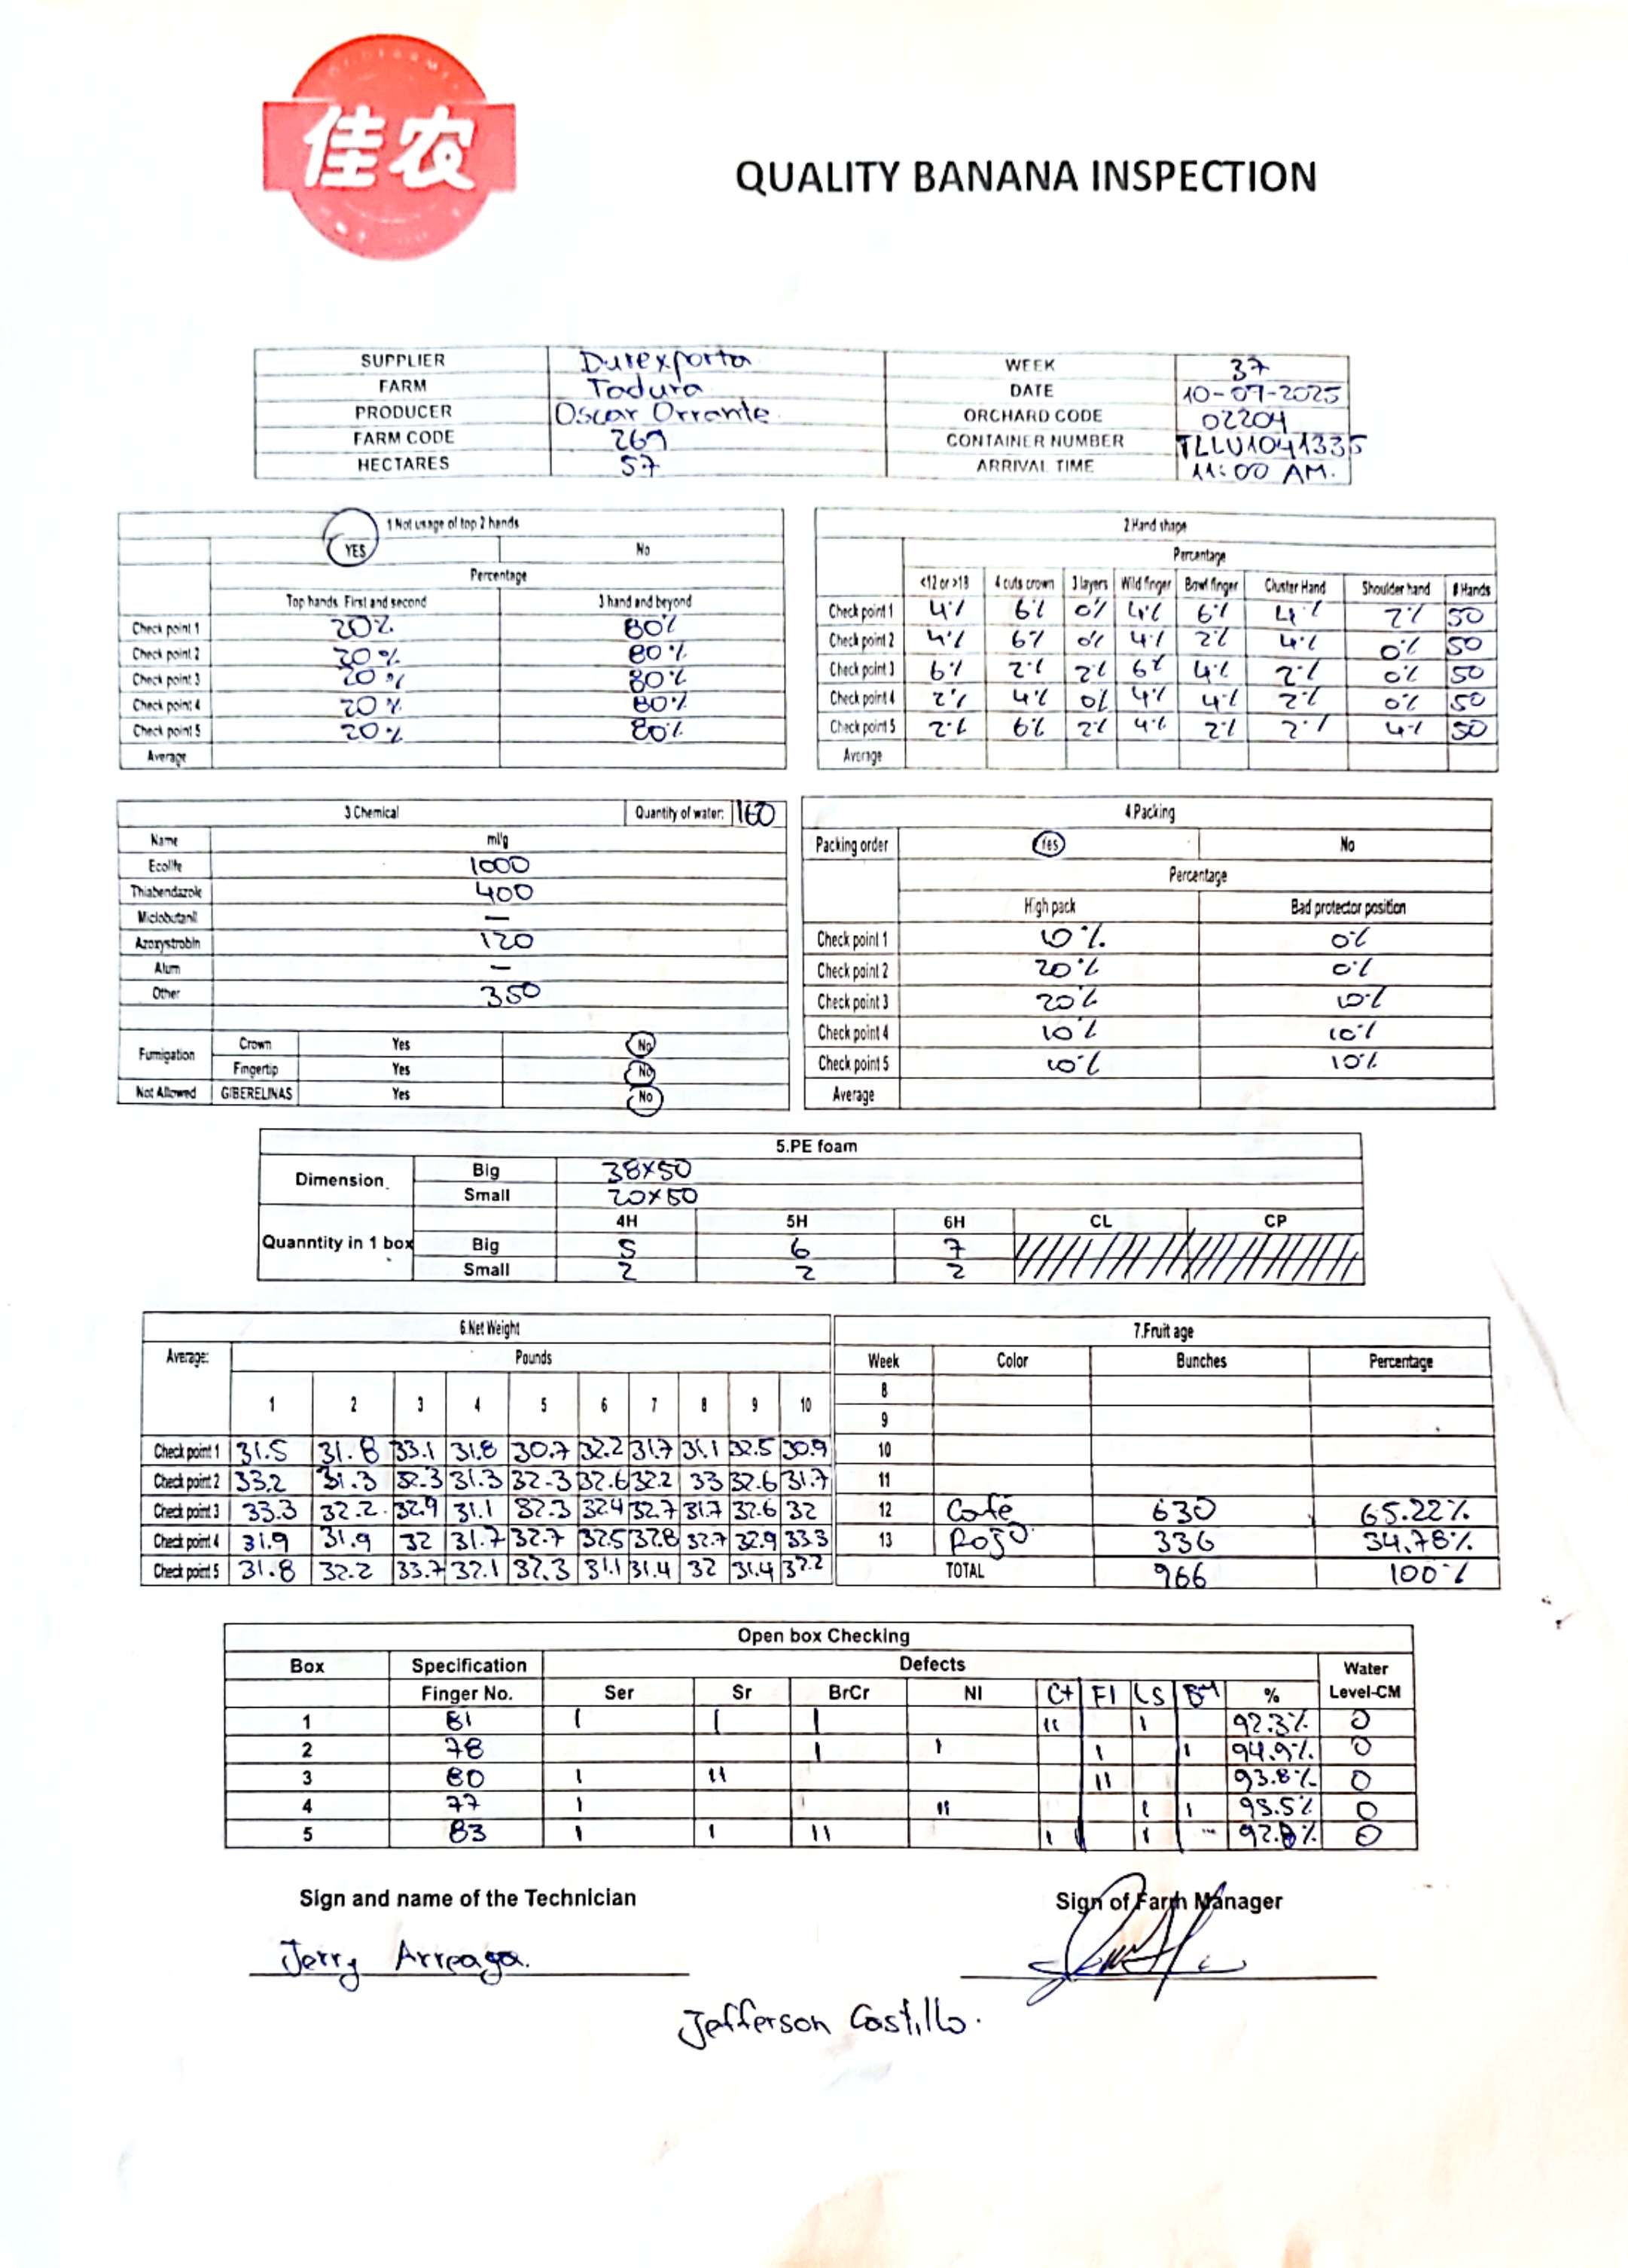 佳农
QUALITY BANANA INSPECTION
SUPPLIER Durexporta WEEK 37
FARM Tadura DATE 10-09-2025
PRODUCER Oscar Orrante ORCHARD CODE 02204
FARM CODE 269 CONTAINER NUMBER TLLU1041335
HECTARES 57 ARRIVAL TIME 11:00 AM.
1 Not usage of top 2 hands
YES No
Percentage
Top hands First and second 3 hand and beyond
Check point 1 20% 80%
Check point 2 20% 80%
Check point 3 20% 80%
Check point 4 20% 80%
Check point 5 20% 80%
Average
2 Hand shape
Percentage
<12 or >18 4 cuts crown 3 layers Wild finger Bowl finger Cluster Hand Shoulder hand # Hands
Check point 1 4% 6% 0% 4% 6% 4% 2% 50
Check point 2 4% 6% 0% 4% 2% 4% 0% 50
Check point 3 6% 2% 2% 6% 4% 2% 0% 50
Check point 4 2% 4% 0% 4% 4% 2% 0% 50
Check point 5 2% 6% 2% 4% 2% 2% 4% 50
Average
3 Chemical Quantity of water: 160
Name ml/g
Ecolife 1000
Thiabendazole 400
Miclobutanil —
Azoxystrobin 120
Alum —
Other 350
Fumigation Crown Yes No
Fingertip Yes No
Not Allowed GIBERELINAS Yes No
4 Packing
Packing order Yes No
Percentage
High pack Bad protector position
Check point 1 10% 0%
Check point 2 20% 0%
Check point 3 20% 10%
Check point 4 10% 10%
Check point 5 10% 10%
Average
5.PE foam
Dimension Big 38x50
Small 20x50
4H 5H 6H CL CP
Quanntity in 1 box Big 5 6 7
Small 2 2 2
6 Net Weight
Average: Pounds
1 2 3 4 5 6 7 8 9 10
Check point 1 31.5 31.8 33.1 31.8 30.7 32.2 31.7 31.1 32.5 30.9
Check point 2 33.2 31.3 32.3 31.3 32.3 32.6 32.2 33 32.6 31.7
Check point 3 33.3 32.2 32.9 31.1 32.3 32.4 32.7 31.7 32.6 32
Check point 4 31.9 31.9 32 31.7 32.7 32.5 32.8 32.7 32.9 33.3
Check point 5 31.8 32.2 33.7 32.1 32.3 31.1 31.4 32 31.4 32.2
7.Fruit age
Week Color Bunches Percentage
8
9
10
11
12 Café 630 65.22%
13 Rojo 336 34.78%
TOTAL 966 100%
Open box Checking
Box Specification Defects Water
Finger No. Ser Sr BrCr NI Ct FI LS BM % Level-CM
1 81 I I I II I 92.3% 0
2 78 I I I I 94.9% 0
3 80 I II II 93.8% 0
4 77 I II I I 93.5% 0
5 83 I I II I I 92.8% 0
Sign and name of the Technician Sign of Farm Manager
Jerry Arreaga.
Jefferson Castillo.